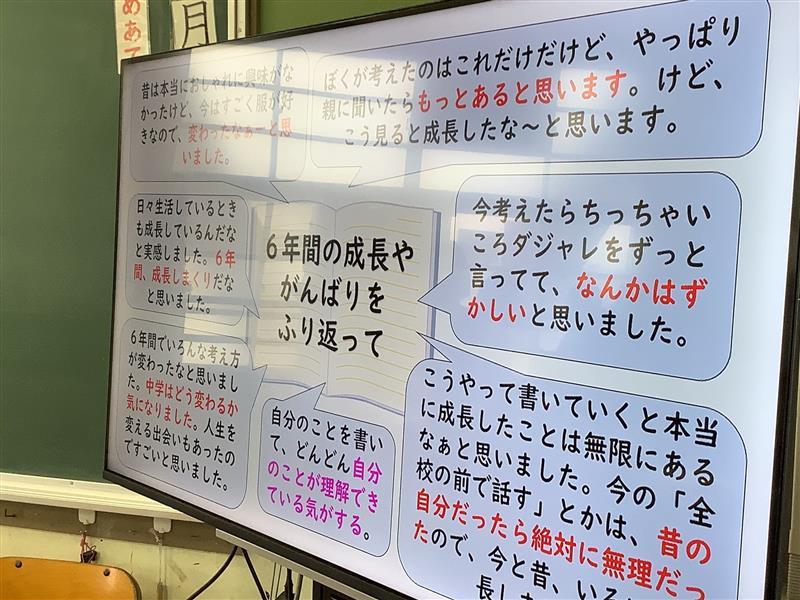 めあて
月
昔は本当におしゃれに興味がな
かったけど、今はすごく服が好
きなので、変わったなぁーと思
いました。
ぼくが考えたのはこれだけだけど、やっぱり
親に聞いたらもっとあると思います。けど、
こう見ると成長したな～と思います。
日々生活しているとき
も成長しているんだな
と実感しました。6年
間、成長しまくりだな
と思いました。
6年間の成長や
がんばりを
ふり返って
今考えたらちっちゃい
ころダジャレをずっと
言ってて、なんかはず
かしいと思いました。
6年間でいろんな考え方
が変わったなと思いまし
た。中学はどう変わるか
気になりました。人生を
変える出会いもあったの
ですごいと思いました。
自分のことを書い
て、どんどん自分
のことが理解でき
ている気がする。
こうやって書いていくと本当
に成長したことは無限にある
なぁと思いました。今の「全
校の前で話す」とかは、昔の
自分だったら絶対に無理だっ
たので、今と昔、いろ
長し